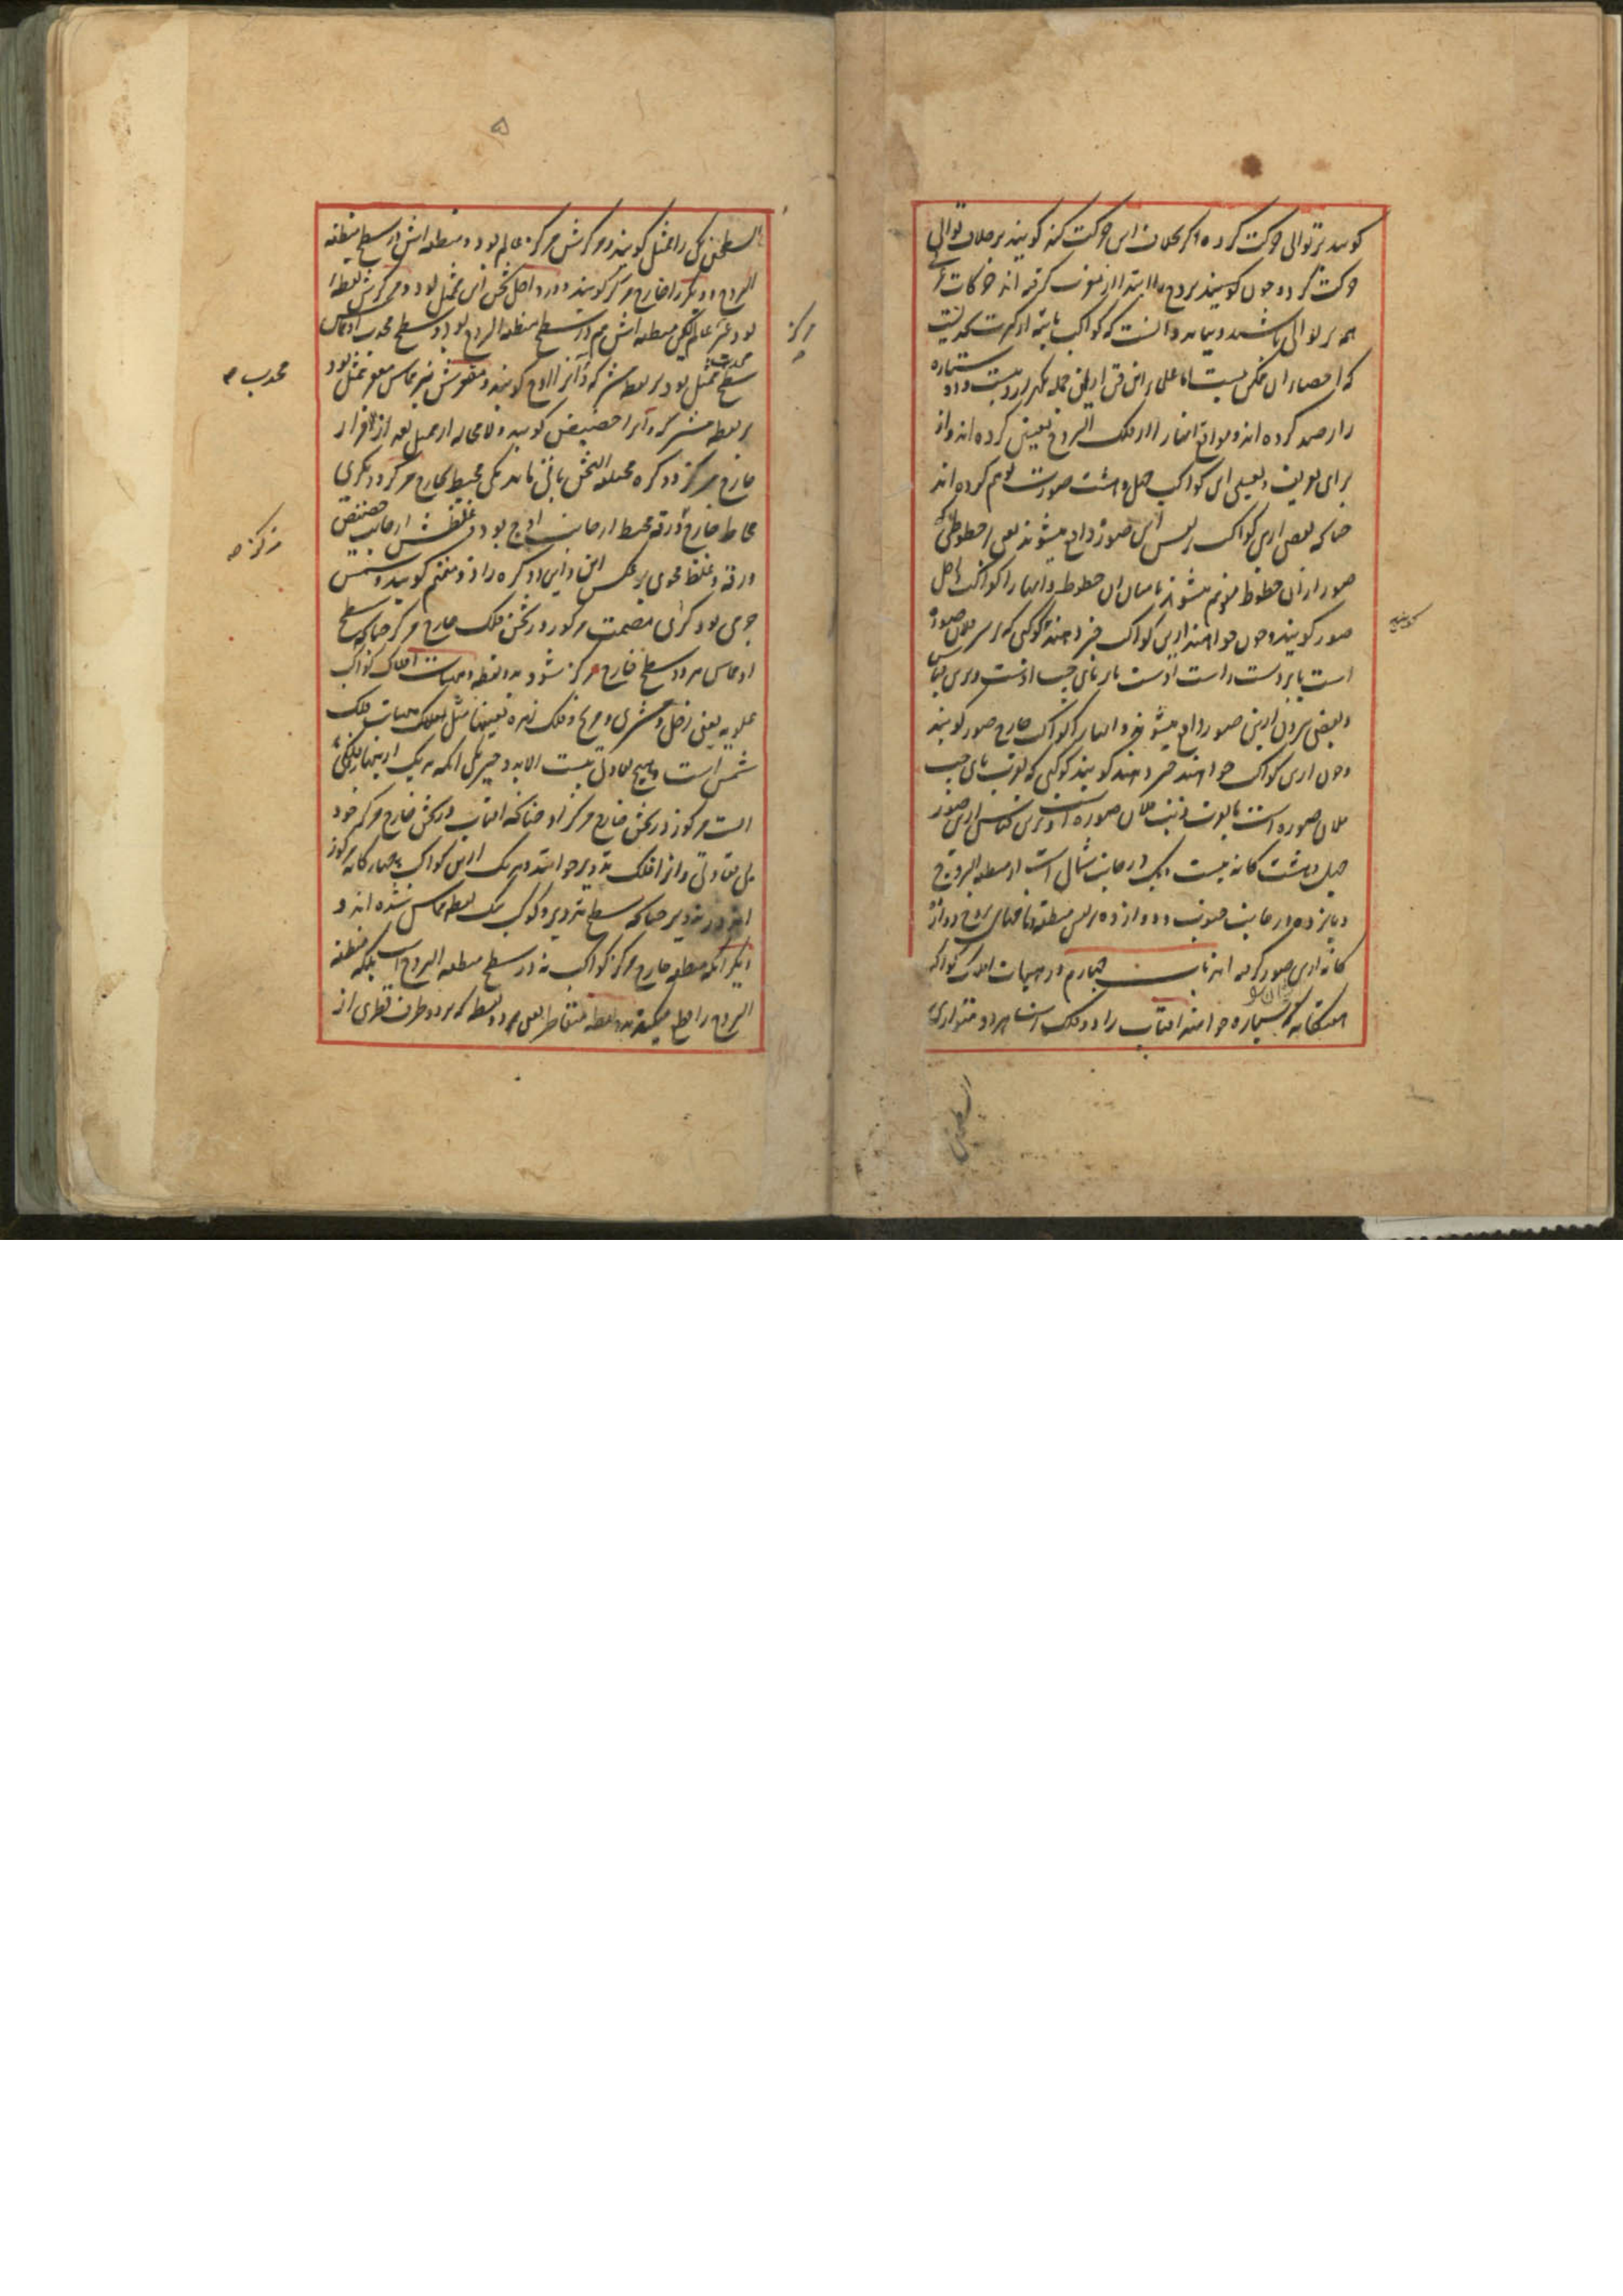 کویند بر توالی حرکت کرد و اکر بخلاف این حرکت کند کویند بر خلاف توالی
حرکت کرد و چون کویند بروج ابتدا از مغرب کرفته اند حرکات
همه بر توالی باشد و بباید دانست که کواکب ثابته از کثرت بحدیست
که احصاء آن ممکن نیست اما علماء این فن از این جمله یکهزار و بیست و دو ستاره
را رصد کرده اند و مواضع ایشان را از فلک البروج تعیین کرده اند و از
برای تعریف و تعیین این کواکب چهل و هشت صورت توهم کرده اند
چنانکه بعضی ازین کواکب بر نفس این صور واقع میشوند یعنی بر خطوطی که
صور از آن خطوط متوهم میشوند یا میان آن خطوط و اینها را کواکب داخل
صور کویند و چون خواهند ازین کواکب خبر دهند کوکبی که بر سر فلان صوره
است یا بر دست راست اوست یا بر پای چپ اوست و برین قیاس
و بعضی بیرون ازین صور واقع میشوند و اینها را کواکب خارج صور کویند
و چون ازین کواکب خواهند خبر دهند کویند کوکبی که بقرب پای چپ
فلان صوره است یا بقرب ذنب فلان صوره است و برین قیاس ازین صور
چهل و هشت کانه بیست و یک در جانب شمالی است از منطقه البروج
و پانزده در جانب جنوب و دوازده بر نفس منطقه و نامهای بروج دوازده
کانه ازین صور کرفته اند باب چهارم در هیات افلاک کواکب
هفتکانه که سیاره خوانند آفتاب را دو فلک است هر دو متوازی
السطحین
کویند
السطحین یکی را ممثل کویند و مرکزش مرکز عالم بود و منطقه اش در سطح منطقه
البروج و دیکر را خارج مرکز کویند و در داخل ثخن این ممثل بود و مرکزش نقطه
بود غیر عالم لیکن منطقه اش هم در سطح منطقه البروج بود و سطح محدب او مماس
سطح محدب ممثل بود بر نقطه مشترک و آنرا اوج کویند و مقعرش نیز مماس مقعر ممثل بود
بر نقطه مشترک و آنرا حضیض کویند و لا محاله از ممثل بعد از افراز
خارج مرکز دو کره مختلفه الثخن باقی ماند یکی محیط بخارج مرکز و دیکری
محاط خارج و رقه محیط از جانب اوج بود و غلظش از جانب حضیض
و رقه و غلظ محوی بر عکس این و این دو کره را دو متمم کویند و شمس
جرمی بود کری مصمت مرکوز در ثخن فلک خارج مرکز چنانکه سطح
او مماس هر دو سطح خارج مرکز شود بدو نقطه و هیات افلاک کواکب
علویه یعنی زحل و مشتری و مریخ و فلک زهره بعینها مثل هیات فلک
شمس است و هیچ تفاوتی نیست الا بدو چیز یکی آنکه هر یک از اینها را فلکی
است مرکوز در ثخن خارج مرکز او چنانکه آفتاب در ثخن خارج مرکز خود
بی تفاوتی و آنرا فلک تدویر خوانند و هر یک ازین کواکب چهارکانه مرکوز
اند در تدویر چنانکه سطح تدویر و کوکب بیک نقطه مماس شده اند و
دیکر آنکه منطقه خارج مرکز کواکب نه در سطح منطقه البروج است بلکه منطقه
البروج را قطع میکند بدو نقطه متقاطر یعنی دو نقطه که بر دو طرف قطری از
مرکز
محدب
مرکز